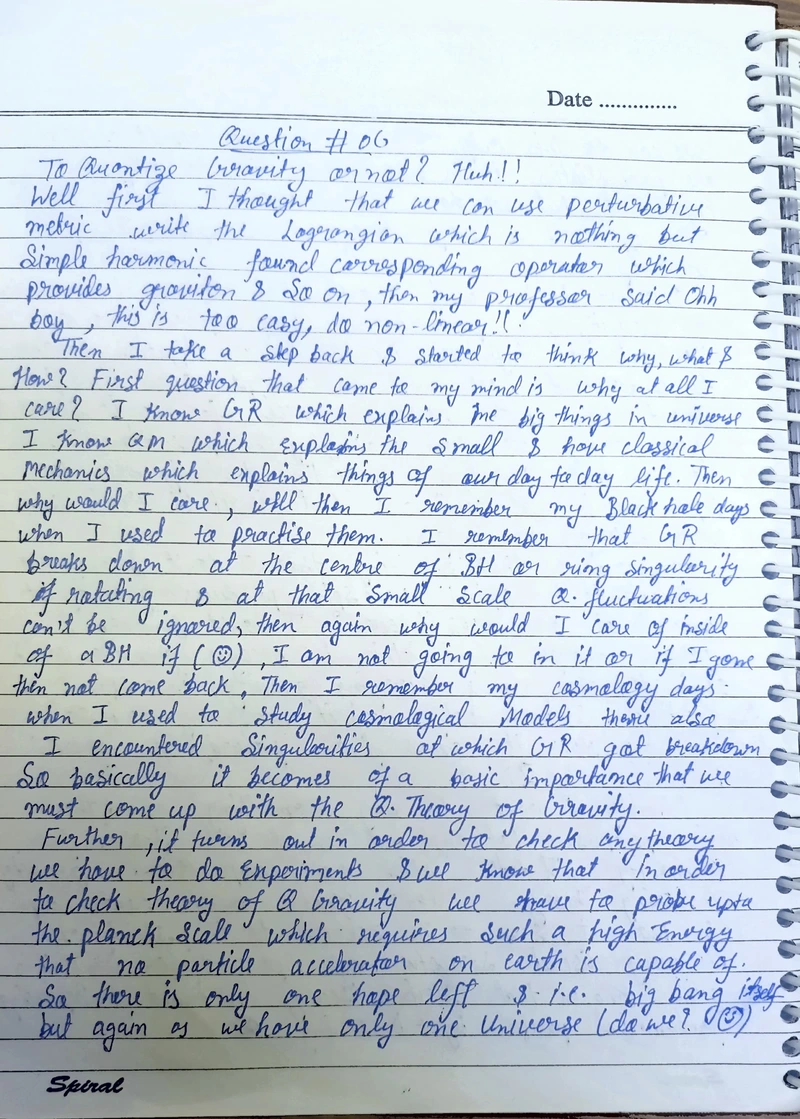 Date ..............
Question # 06
To Quantize Gravity or not? Huh!!
Well first I thought that we can use perturbative
metric write the Lagrangian which is nothing but
Simple harmonic found corresponding operator which
provides graviton & So on, then my professor said Ohh
boy, this is too easy, do non-linear!!
Then I take a step back & started to think why, what &
How? First question that came to my mind is why at all I
care? I know GR which explains the big things in universe
I know QM which explains the small & have classical
Mechanics which explains things of our day to day life. Then
why would I care, well then I remember my Black hole days
when I used to practise them. I remember that GR
breaks down at the centre of BH or ring singularity
if rotating & at that small scale Q. fluctuations
can't be ignored, then again why would I care of inside
of a BH if (☺), I am not going to in it or if I gone
then not come back, Then I remember my cosmology days
when I used to study cosmological Models there also
I encountered Singularities at which GR got breakdown
So basically it becomes of a basic importance that we
must come up with the Q. Theory of Gravity.
Further, it turns out in order to check any theory
we have to do Experiments & we know that in order
to check theory of Q Gravity we have to probe upto
the planck Scale which requires such a high Energy
that no particle accelerator on earth is capable of.
So there is only one hope left & i.e. big bang itself
but again as we have only one Universe (do we? ☺)
Spiral